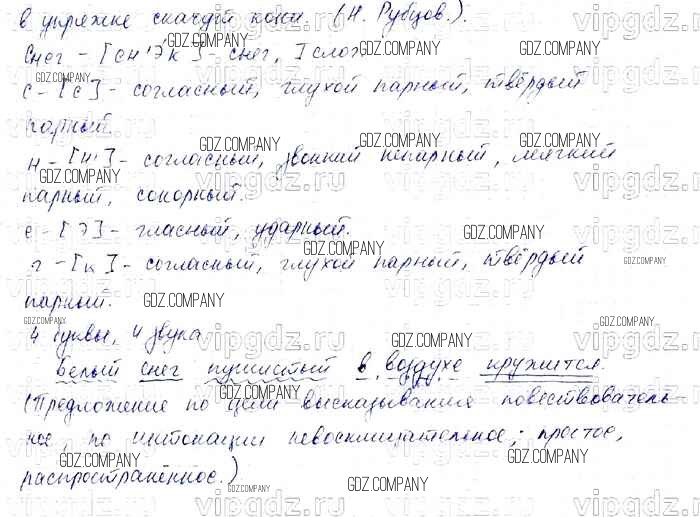 в упряжке скачут кони. (Н. Рубцов.).
Снег - [сн'эк] - снег, 1 слог
с - [с] - согласный, глухой парный, твёрдый
парный.
н - [н'] - согласный, звонкий непарный, мягкий
парный, сонорный.
е - [э] - гласный, ударный.
г - [к] - согласный, глухой парный, твёрдый
парный.
4 буквы, 4 звука
Белый снег пушистый в воздухе кружится.
(Предложение по цели высказывания повествователь-
ное, по интонации невосклицательное; простое,
распространённое.)
GDZ.COMPANY
vipgdz.ru